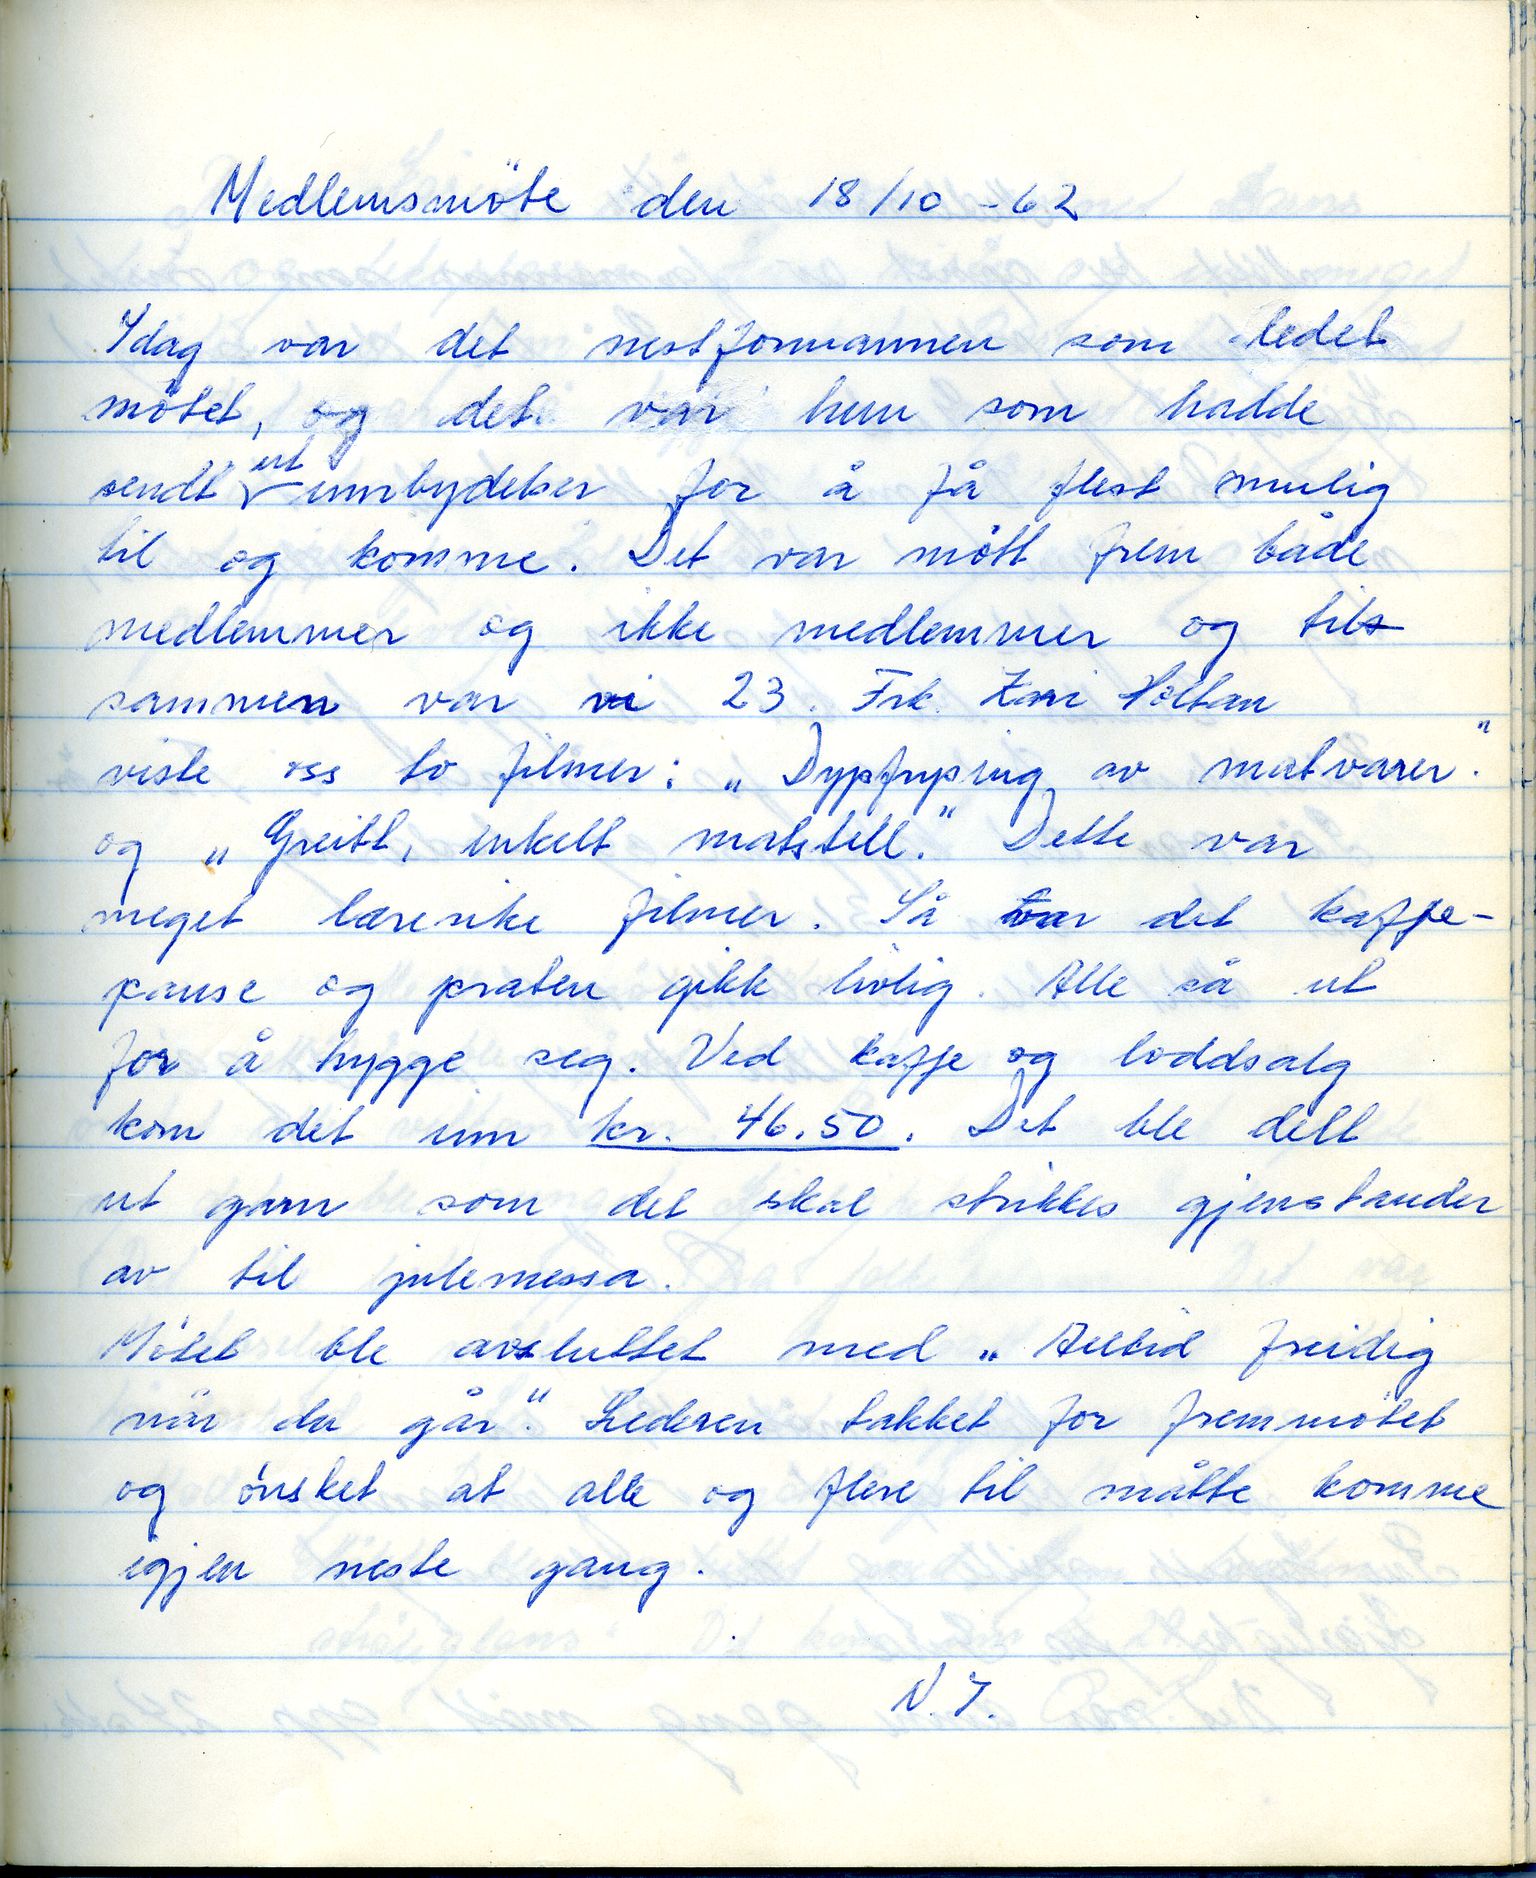 Medlemsmöte den 18/10 - 62
Idag var det nestformannen som ledet
mötet, og det var hun som hadde
sendt ut innbydelser for å få flest mulig
til og komme. Det var mött frem både
medlemmer og ikke medlemmer og til
sammen var vi 23. Frk. Kari Holtan
viste oss to filmer: „Dypfrysing av matvarer."
og „Greitt, enkelt matstell." Dette var
meget lærerike filmer. Så var det kaffe-
pause og praten gikk livlig. Alle så ut
for å hygge seg. Ved kaffe og loddsalg
kom det inn kr. 46.50. Det ble delt
ut garn som det skal strikkes gjenstander
av til julemessa.
Mötet ble avsluttet med „Alltid freidig
når du går". Lederen takket for fremmötet
og ønsket at alle og flere til måtte komme
igjen neste gang.
N. I.